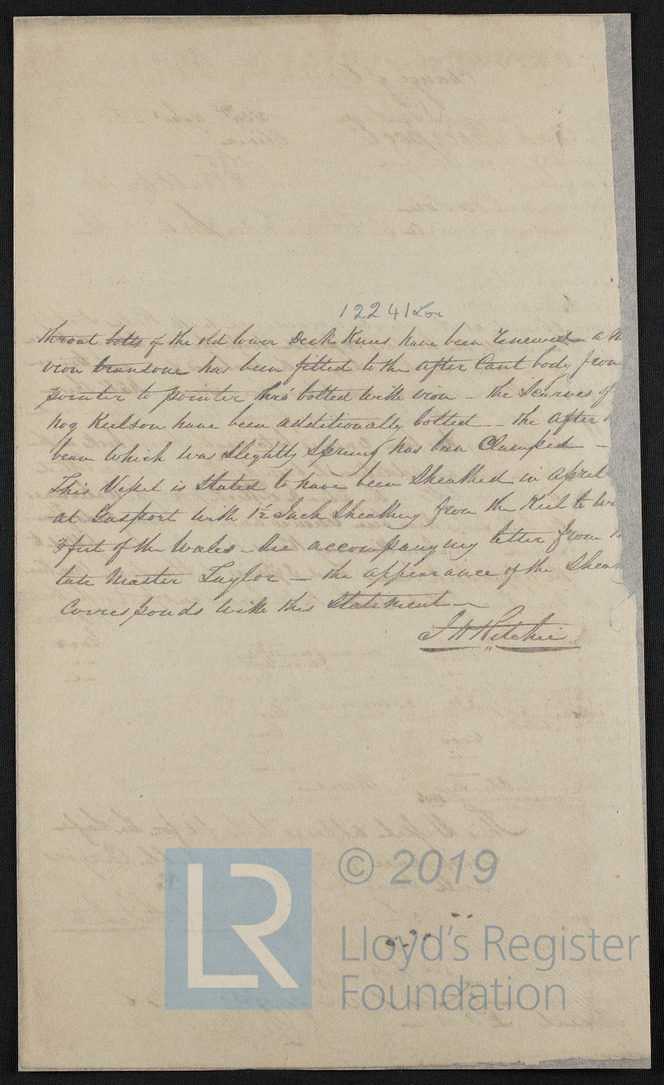 12241 Lon
throat bolts of the old lower Deck Knees have been renewed - a
iron transome has been fitted to the after Cant body from
pointer to pointer thro' bolted with iron - the Scarves of
hog Keelson have been additionally bolted - - the after
beam which was slightly sprung has been Clamped -
This Vessel is stated to have been Sheathed in April
at Gosport with 1½ Inch Sheathing from the Keel to
3 feet of the Wales - See accompanying letter from
late Master Taylor - the appearance of the
Corresponds with this Statement -
J H Ritchie
© 2019
LR
Lloyd's Register
Foundation